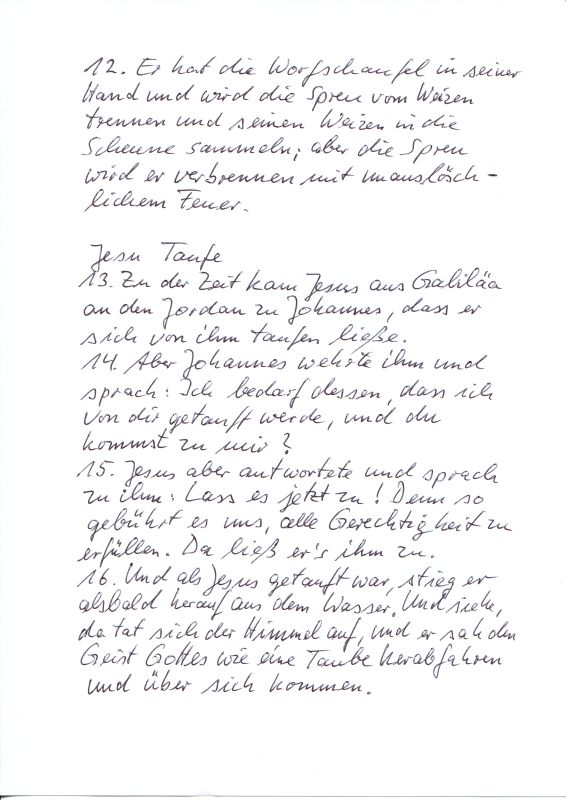 12. Er hat die Worfschaufel in seiner
Hand und wird die Spreu vom Weizen
trennen und seinen Weizen in die
Scheune sammeln; aber die Spreu
wird er verbrennen mit unauslösch-
lichem Feuer.
Jesu Taufe
13. Zu der Zeit kam Jesus aus Galiläa
an den Jordan zu Johannes, dass er
sich von ihm taufen ließe.
14. Aber Johannes wehrte ihm und
sprach: Ich bedarf dessen, dass ich
von dir getauft werde, und du
kommst zu mir?
15. Jesus aber antwortete und sprach
zu ihm: Lass es jetzt zu! Denn so
gebührt es uns, alle Gerechtigkeit zu
erfüllen. Da ließ er's ihm zu.
16. Und als Jesus getauft war, stieg er
alsbald herauf aus dem Wasser. Und siehe,
da tat sich der Himmel auf, und er sah den
Geist Gottes wie eine Taube herabfahren
und über sich kommen.